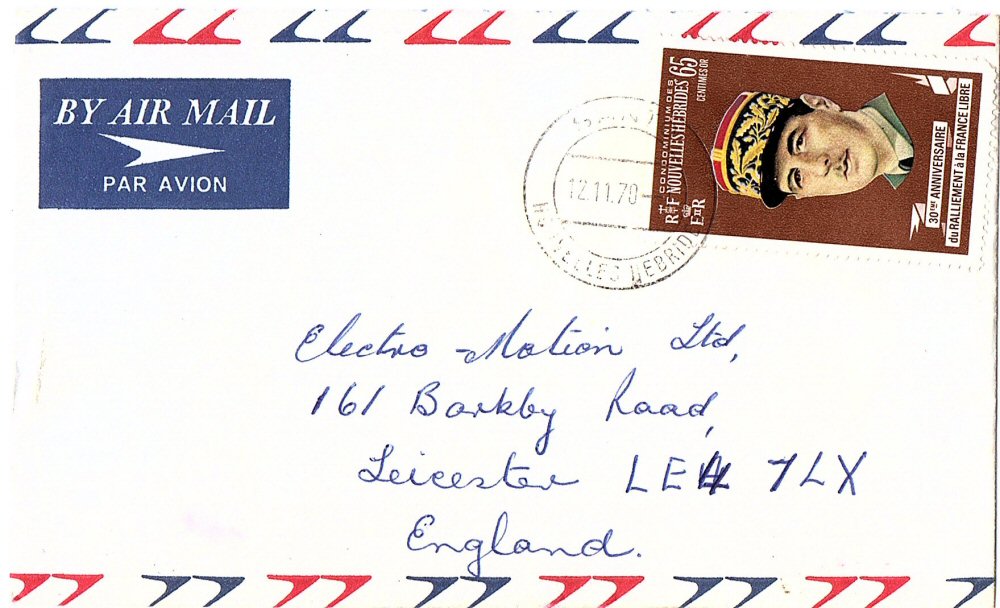 BY AIR MAIL
PAR AVION
SANT
12.11.70
NOUVELLES HEBRIDES
CONDOMINIUM DES
NOUVELLES HÉBRIDES
65
CENTIMES OR
RF
EIIR
30ème ANNIVERSAIRE
du RALLIEMENT à la FRANCE LIBRE
Electro-Motion Ltd,
161 Barkby Road,
Leicester LE4 7LX
England.